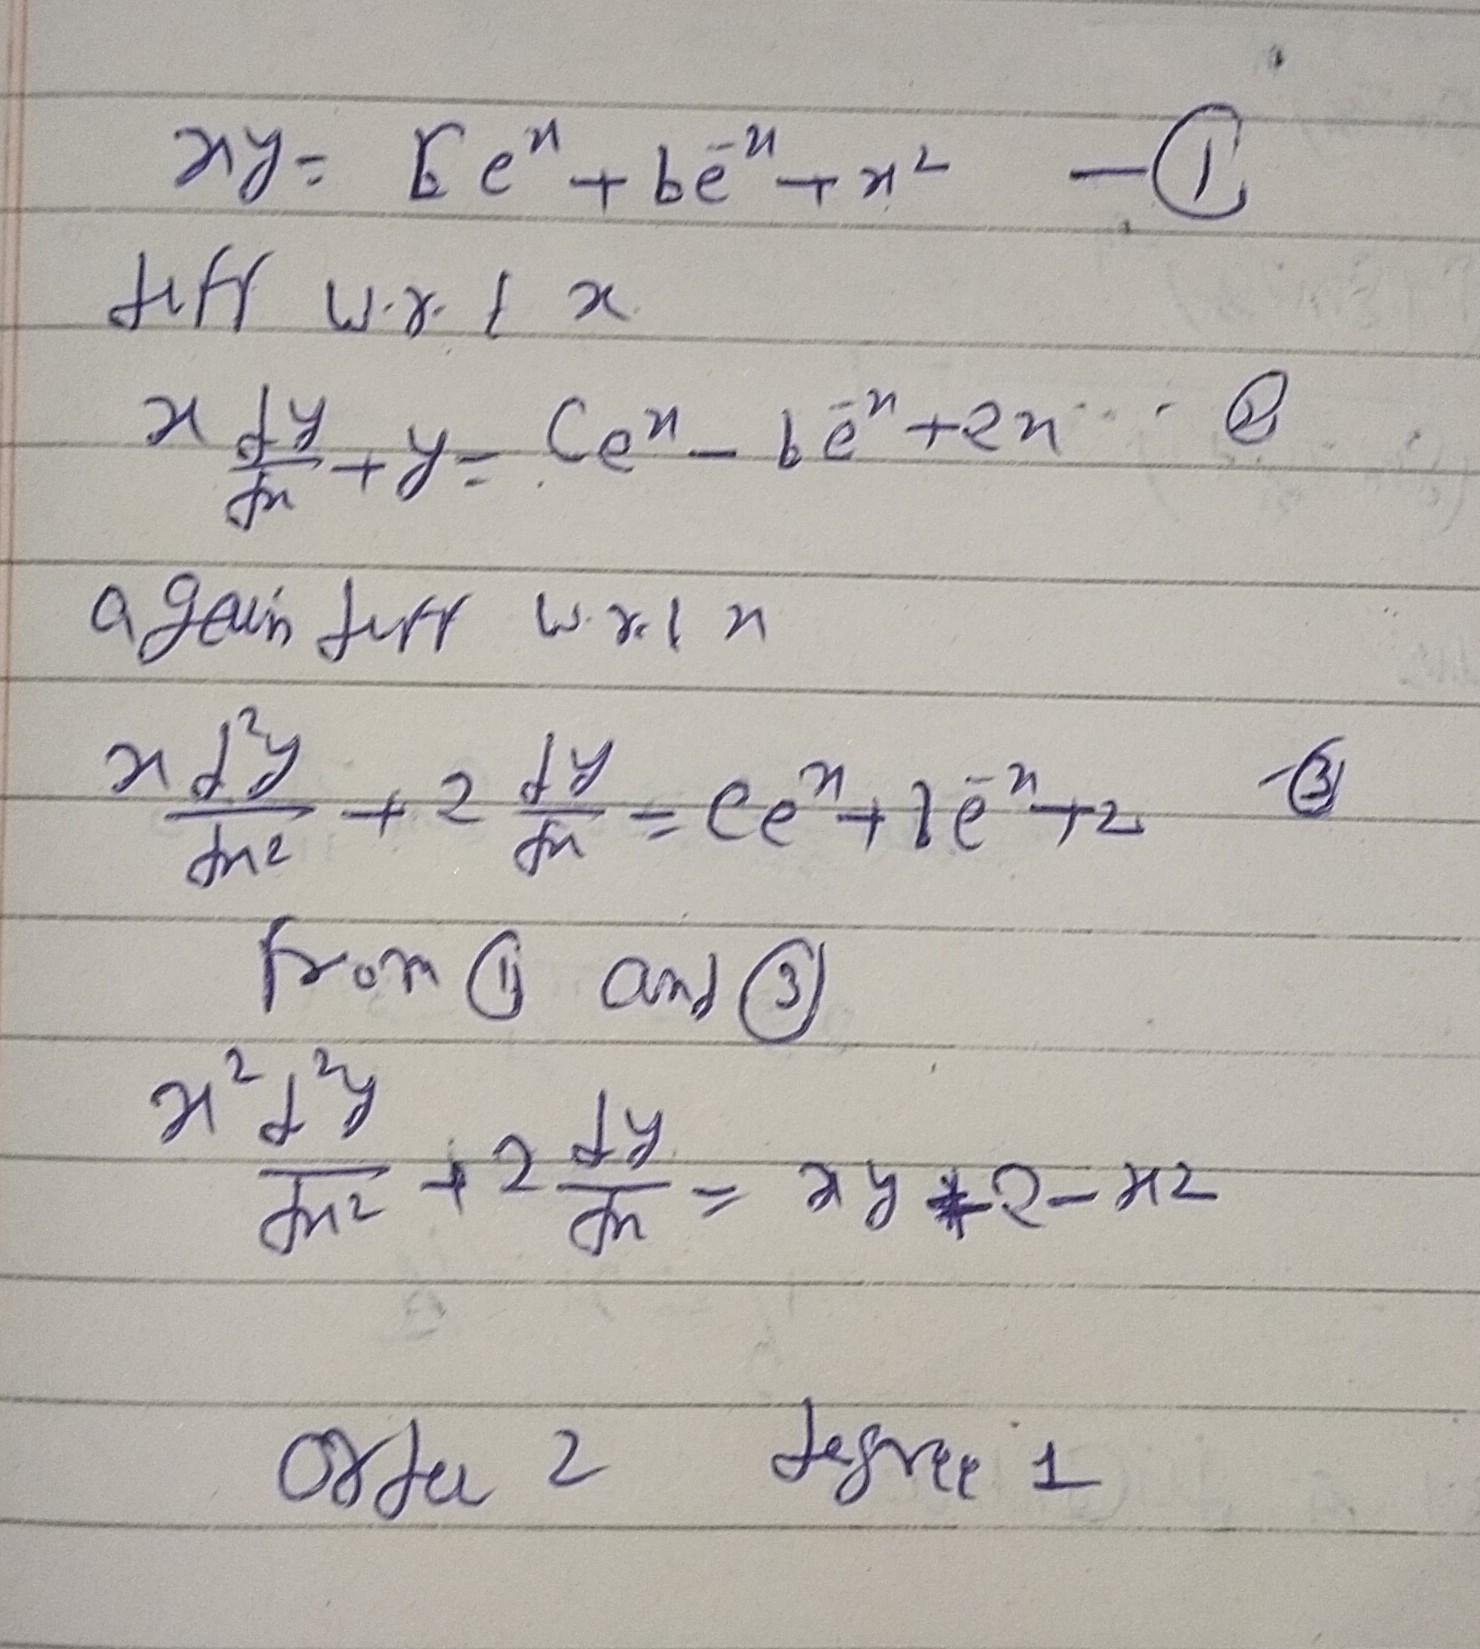 xy = Ce^x + be^-x + x² — ①
diff w.r.t x
x dy/dx + y = Ce^x - be^-x + 2x ... ②
again diff w.r.t x
x d²y/dx² + 2 dy/dx = Ce^x + be^-x + 2 — ③
from ① and ③
x² d²y/dx² + 2 dy/dx = xy + 2 - x²
Order 2 degree 1